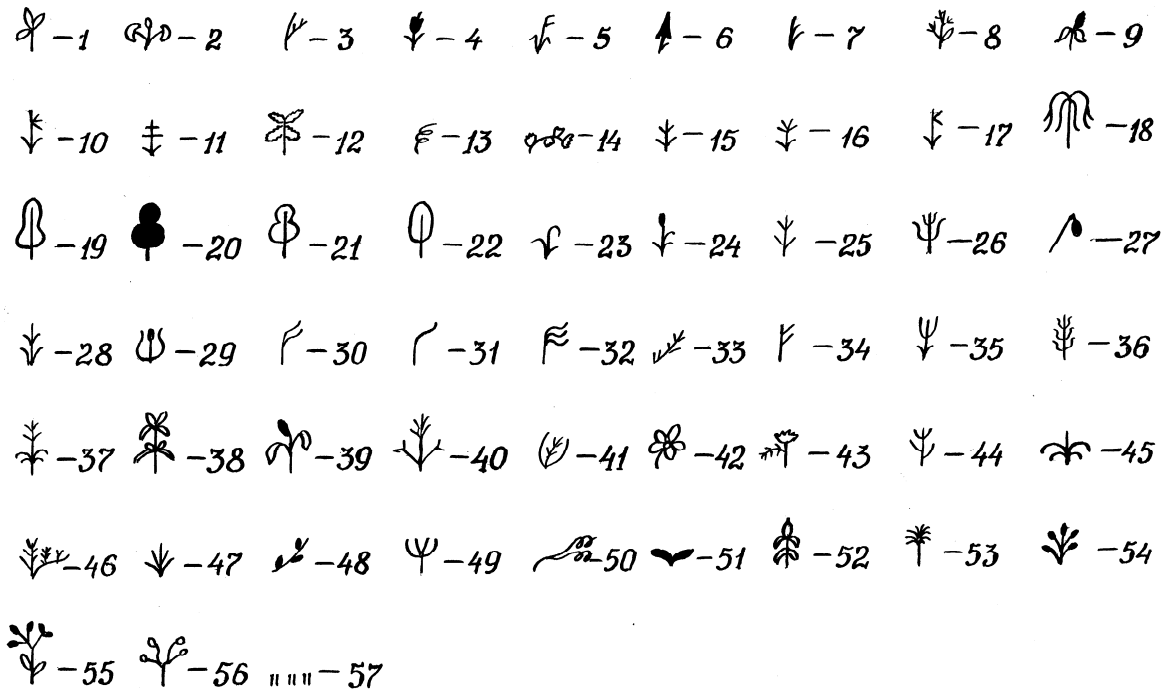 – 1 – 2 – 3 – 4 – 5 – 6 – 7 – 8 – 9
– 10 – 11 – 12 – 13 – 14 – 15 – 16 – 17 – 18
– 19 – 20 – 21 – 22 – 23 – 24 – 25 – 26 – 27
– 28 – 29 – 30 – 31 – 32 – 33 – 34 – 35 – 36
– 37 – 38 – 39 – 40 – 41 – 42 – 43 – 44 – 45
– 46 – 47 – 48 – 49 – 50 – 51 – 52 – 53 – 54
– 55 – 56 – 57